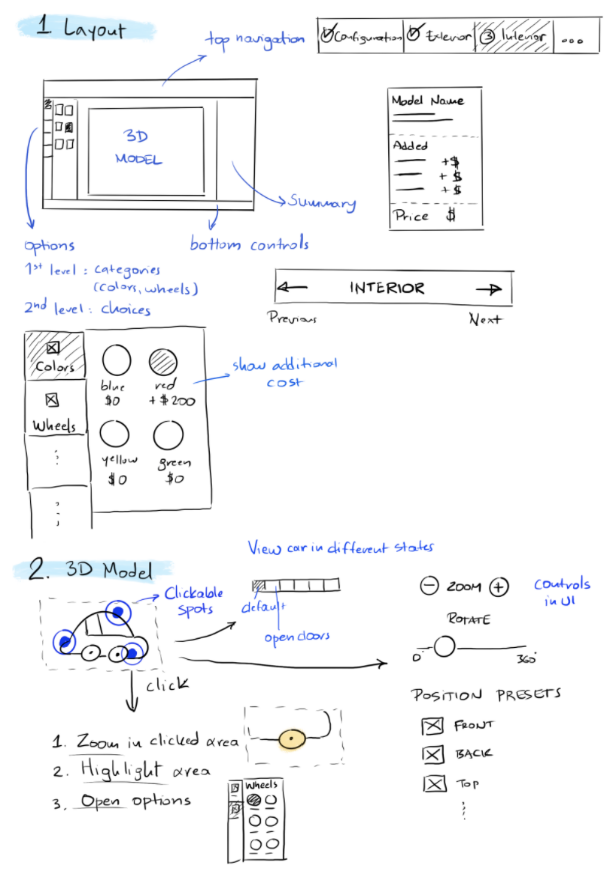 1 Layout
top navigation
Configuration
Exterior
3 Interior
...
3D
MODEL
Summary
options
bottom controls
Model Name
Added
+$
+$
+$
Price $
1st level: categories
(colors, wheels)
2nd level: choices
INTERIOR
Previous
Next
Colors
Wheels
blue
$0
red
+$200
yellow
$0
green
$0
show additional
cost
2. 3D Model
View car in different states
Clickable
spots
default
open doors
ZOOM
controls
in UI
ROTATE
0°
360°
click
POSITION PRESETS
FRONT
BACK
TOP
1. Zoom in clicked area
2. Highlight area
3. Open options
Wheels